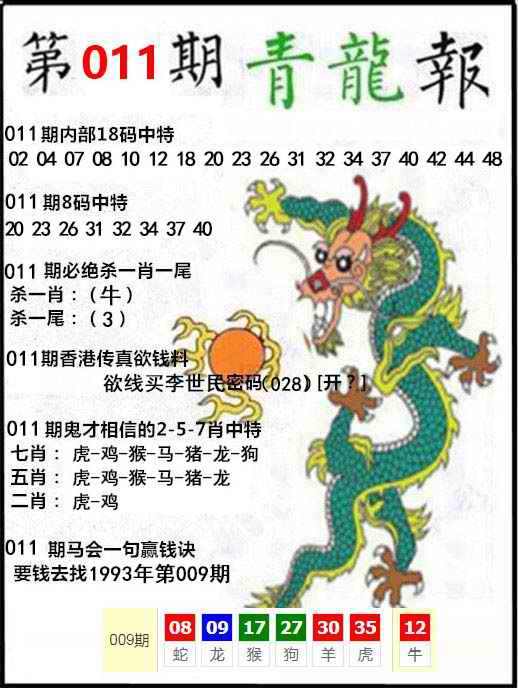 第011期青龍報
011期内部18码中特
02 04 07 08 10 12 18 20 23 26 31 32 34 37 40 42 44 48
011期8码中特
20 23 26 31 32 34 37 40
011 期必绝杀一肖一尾
杀一肖：(牛)
杀一尾：(3)
011期香港传真欲钱料
欲线买李世民密码(028)[开?]
011期鬼才相信的2-5-7肖中特
七肖：虎-鸡-猴-马-猪-龙-狗
五肖：虎-鸡-猴-马-猪-龙
二肖：虎-鸡
011 期马会一句赢钱诀
要钱去找1993年第009期
009期 08 09 17 27 30 35 12
蛇 龙 猴 狗 羊 虎 牛